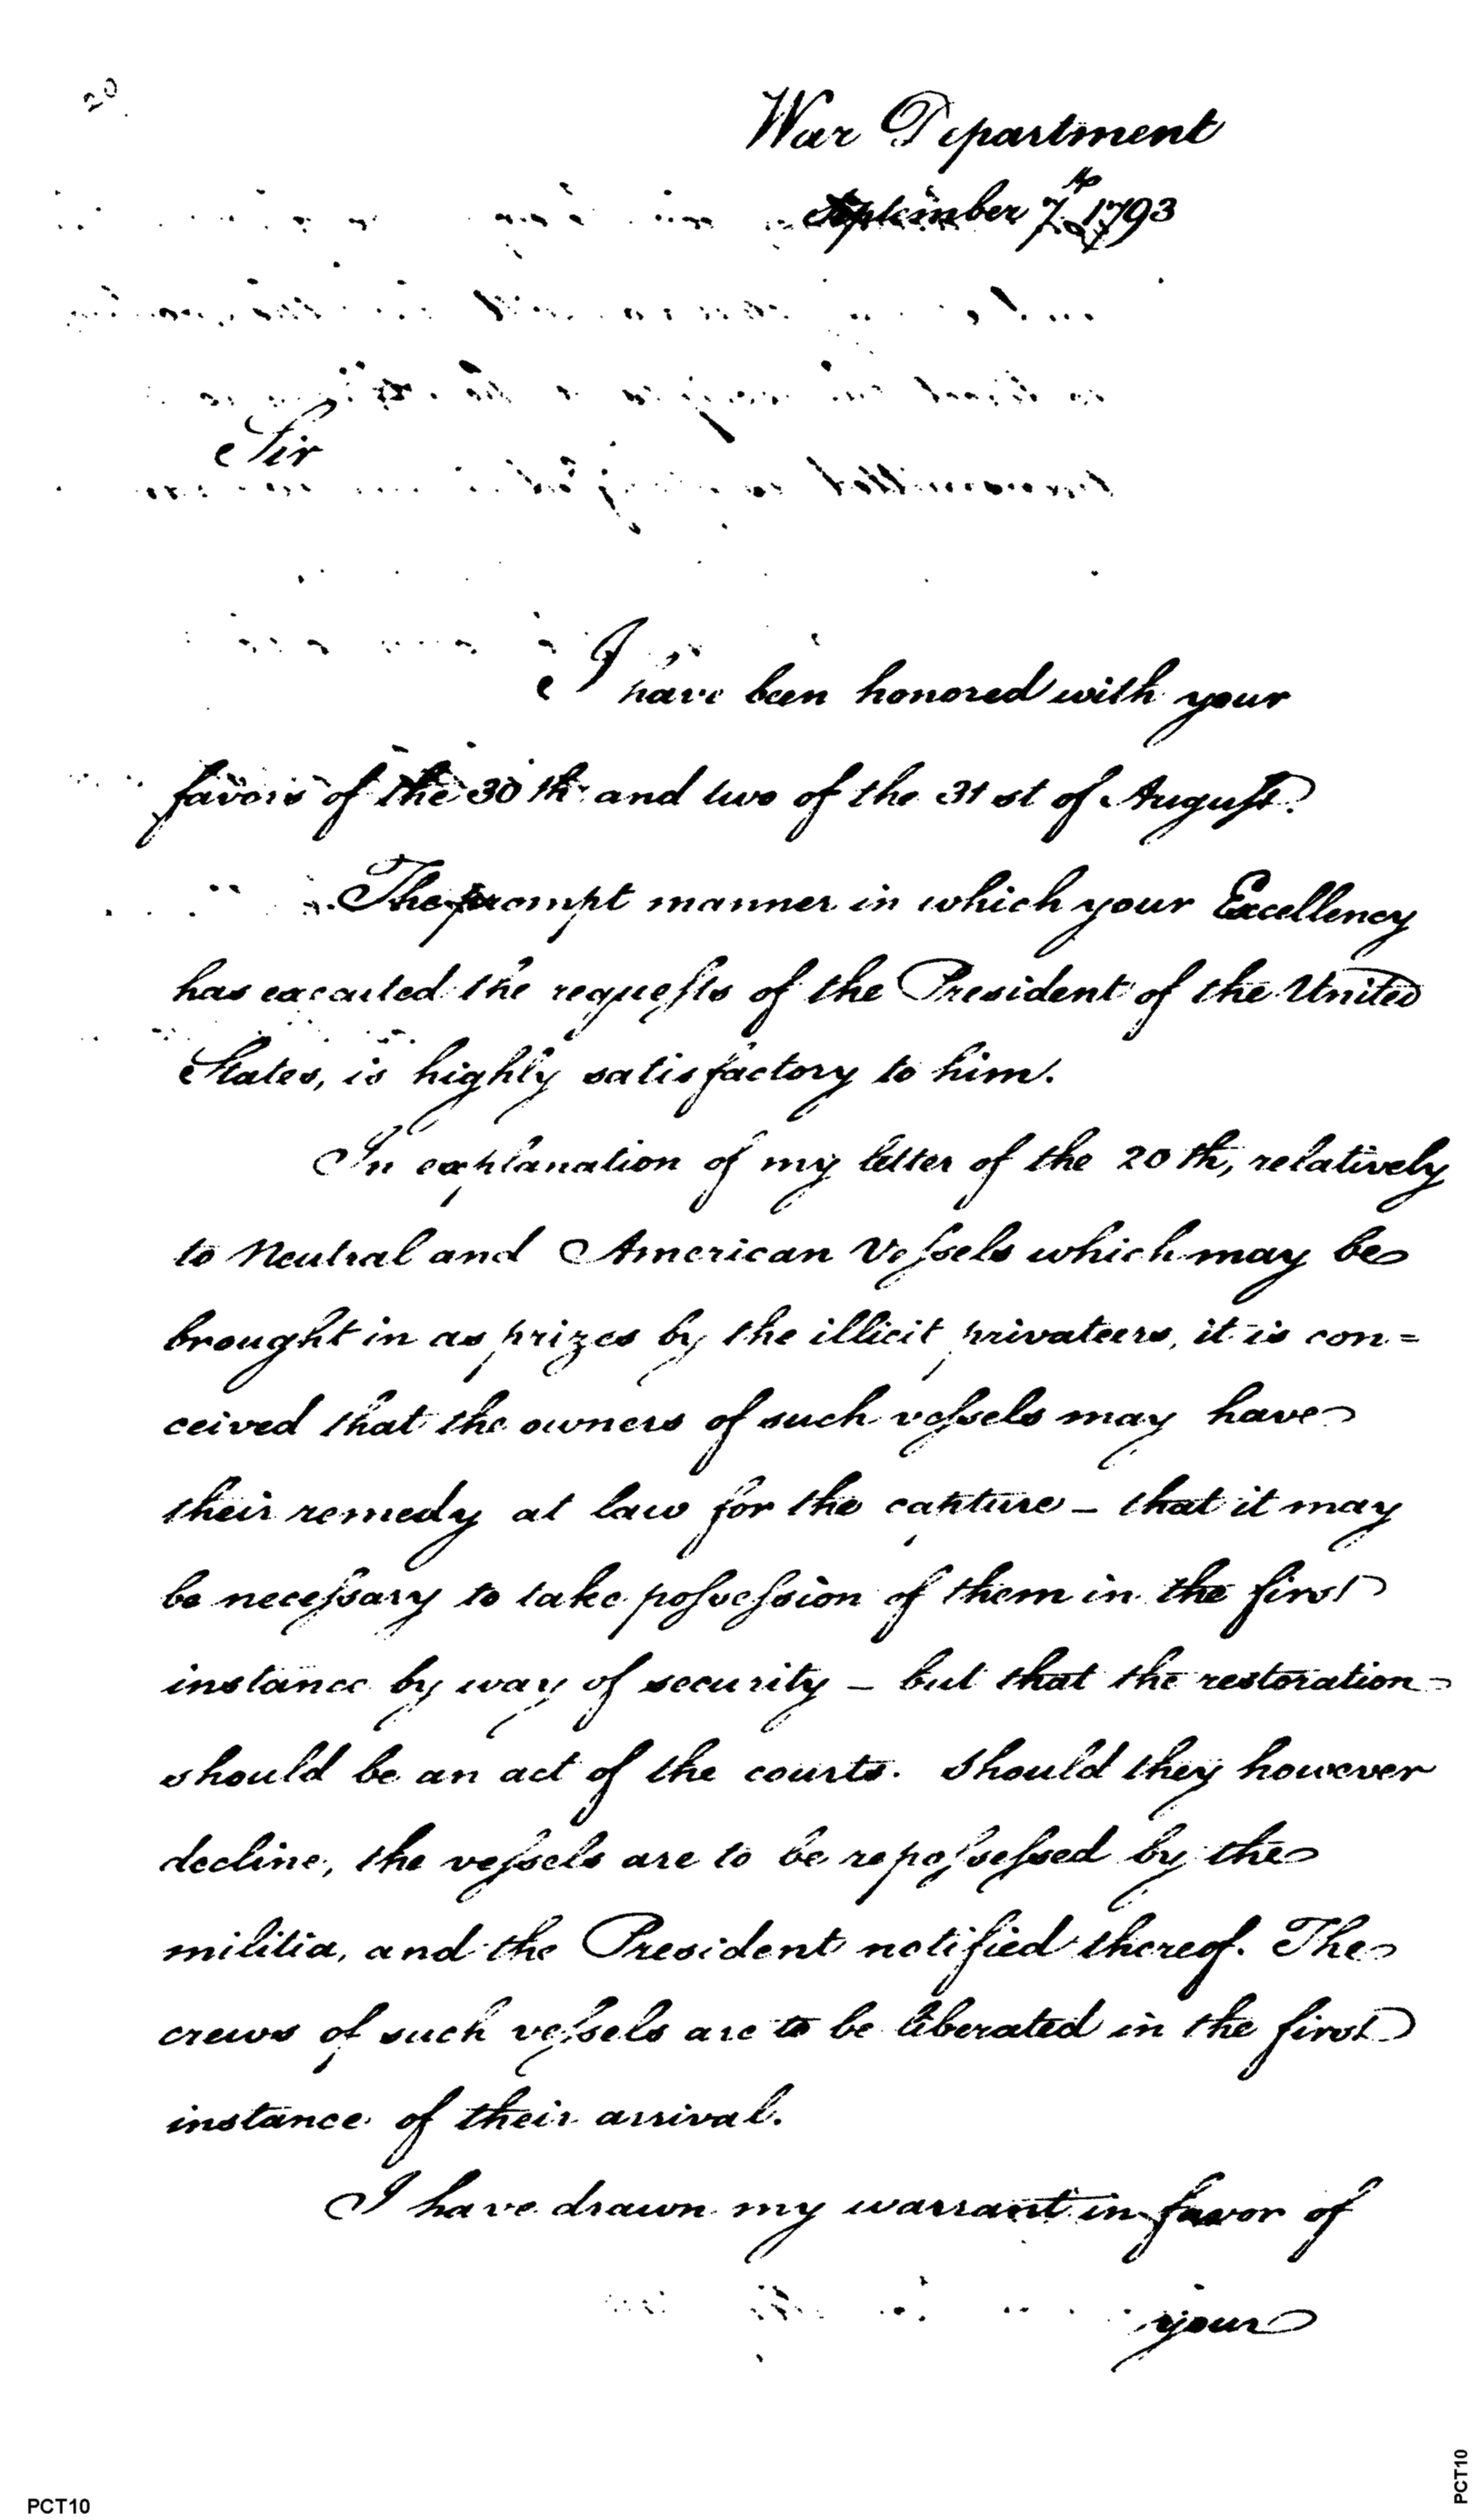 20
War Department
September 7th 1793
Sir
I have been honored with your
favors of the 30th and two of the 31st of August.
The prompt manner in which your Excellency
has executed the requests of the President of the United
States, is highly satisfactory to him.
In explanation of my letter of the 20th, relatively
to Neutral and American Vessels which may be
brought in as prizes by the illicit privateers, it is con=
ceived that the owners of such vessels may have
their remedy at law for the capture - that it may
be necessary to take possession of them in the first
instance by way of security - but that the restoration
should be an act of the courts. Should they however
decline, the vessels are to be repossessed by the
militia, and the President notified thereof. The
crews of such vessels are to be liberated in the first
instance of their arrival.
I have drawn my warrant in favor of
your
PCT10
PCT10